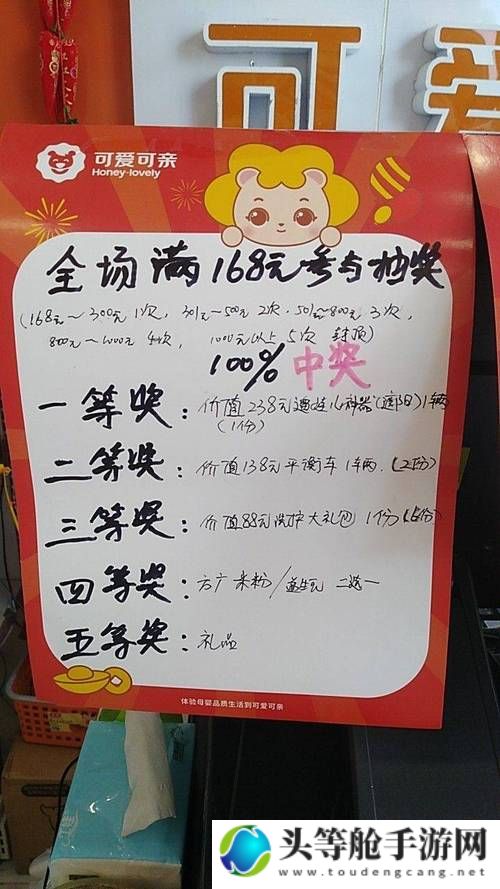 可爱
可爱可亲
Honey·lovely
全场满168元参与抽奖
(168元~300元1次, 301元~500元2次, 501元~800元3次,
800元~1000元4次, 1000元以上5次 封顶)
100% 中奖
一等奖: 价值238元遛娃神器(遮阳)1辆
(1份)
二等奖: 价值138元平衡车1辆.(2份)
三等奖: 价值88元洗护大礼包1份
四等奖: 方广米粉/益生元 二选一
五等奖: 礼品
体验母婴品质生活到可爱可亲
头等舱手游网
www.toudengcang.net